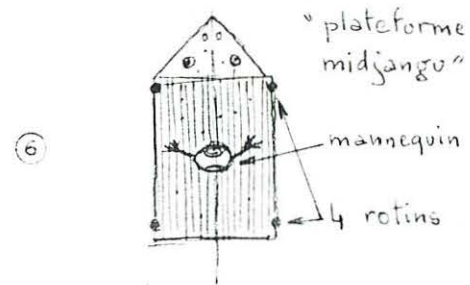 "plateforme
midjangu"
6
mannequin
4 rotins